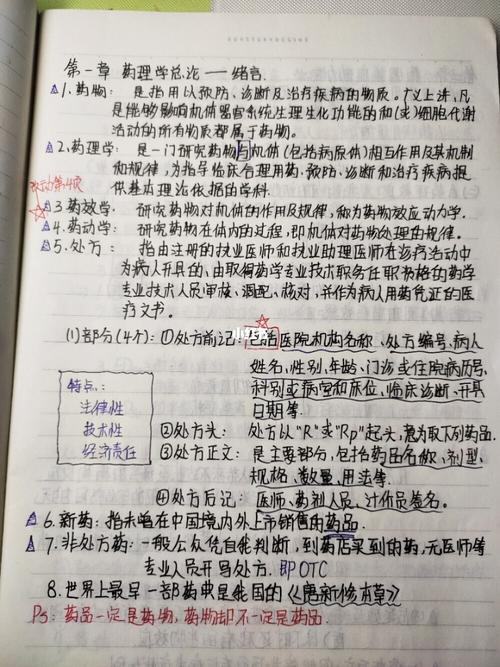 第一章 药理学总论——绪言.
△1、药物: 是指用以预防、诊断及治疗疾病的物质。广义上讲,凡
是能够影响机体器官系统生理生化功能的和(或)细胞代谢
活动的所有物质都属于药物。
△2.药理学: 是一门研究药物与机体(包括病原体)相互作用及其机制
和规律,为指导临床合理用药、预防、诊断和治疗疾病提
供基本理论依据的学科.
☆△3药效学: 研究药物对机体的作用及规律,称为药物效应动力学.
△4.药动学: 研究药物在体内的过程,即机体对药物处理的规律。
△5.处方: 指由注册的执业医师和执业助理医师在诊疗活动中
为病人开具的、由取得药学专业技术职务任职资格的药学
专业技术人员审核、调配、核对,并作为病人用药凭证的医
疗文书。
(1)部分(4个): ①处方前记: 包括医院机构名称、处方编号、病人
小红书
姓名,性别,年龄、门诊或住院病历号,
科别或病室和床位,临床诊断、开具
日期等.
特点:
法律性
技术性
经济责任
②处方头: 处方以"R"或"Rp"起头,意为取下列药品.
③处方正文: 是主要部分,包括药品名称、剂型、
规格、数量、用法等.
④处方后记: 医师、药剂人员、计价员签名。
△6.新药: 指未曾在中国境内外上市销售的药品.
△7、非处方药: 一般公众凭自我判断,到药店买到的药,无医师等
专业人员开写处方.即OTC
8.世界上最早一部药典是我国的《唐新修本草》
Ps: 药品一定是药物,药物却不一定是药品.